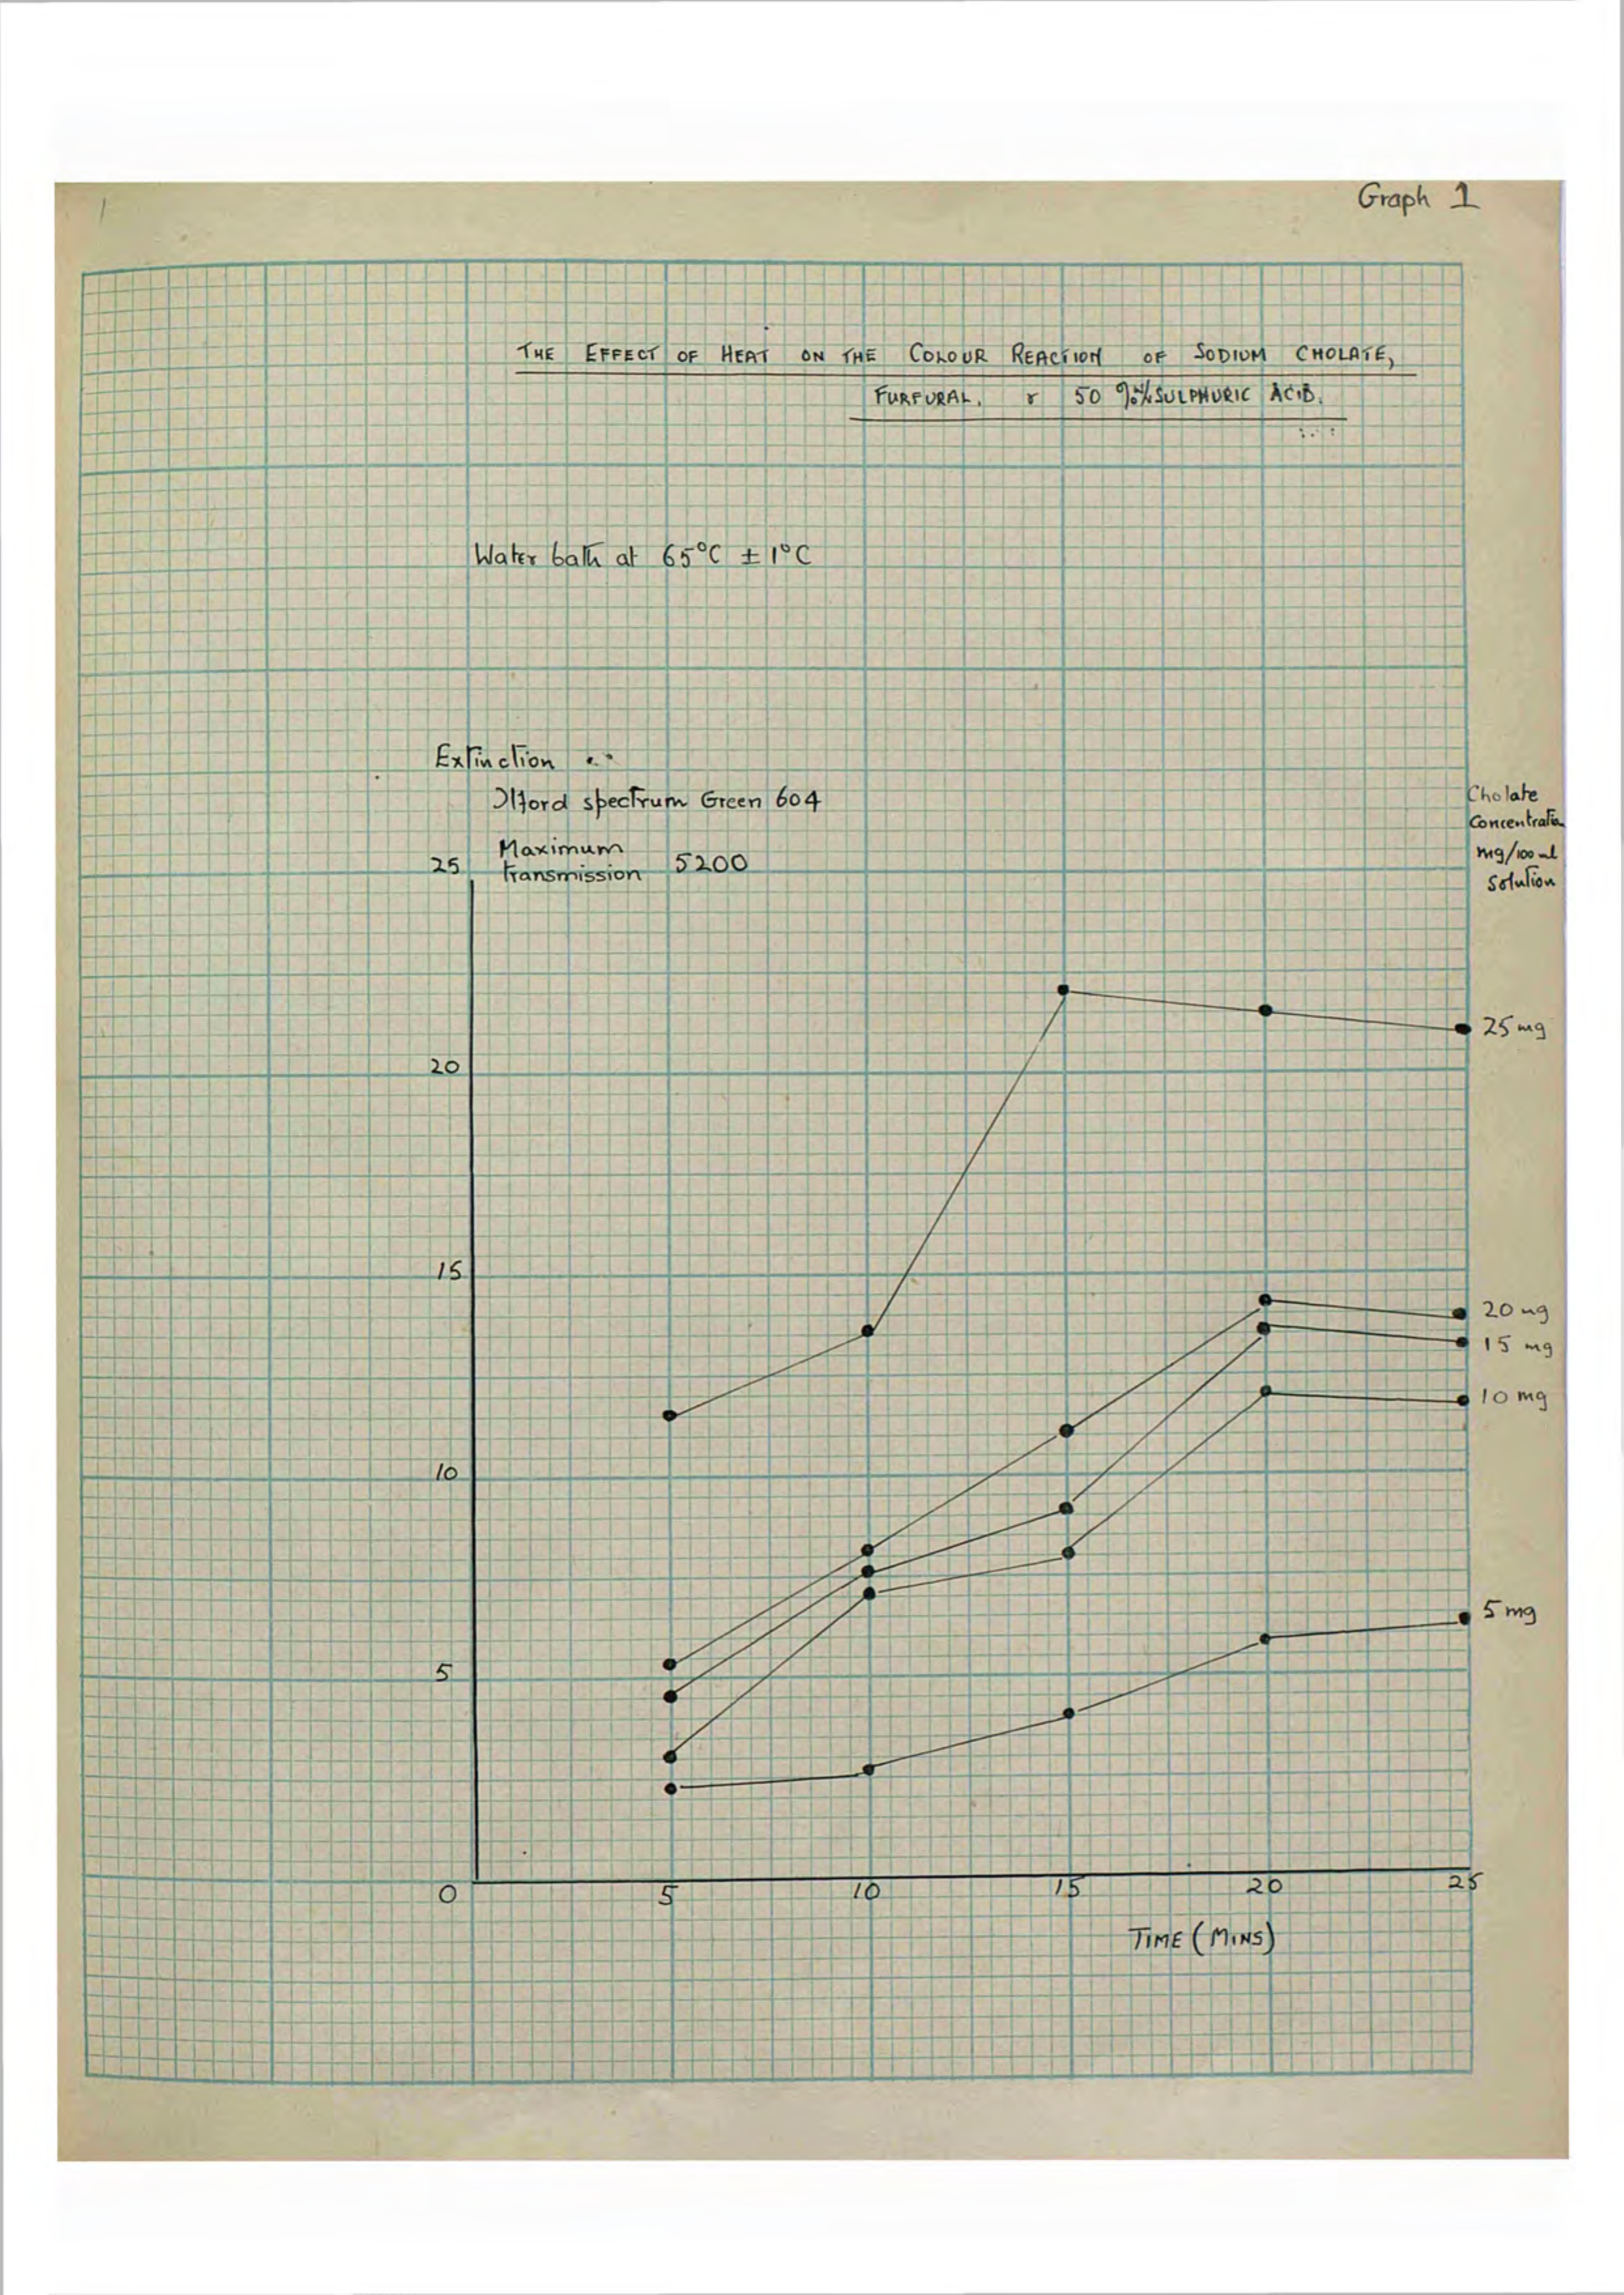 Graph 1
THE EFFECT OF HEAT ON THE COLOUR REACTION OF SODIUM CHOLATE,
FURFURAL, & 50 % SULPHURIC ACID.
Water bath at 65°C ±1°C
Extinction
Ilford spectrum Green 604
Maximum
transmission 5200
Cholate
Concentratio
mg/100 ml
Solution
25
25 mg
20
15
20 mg
15 mg
10 mg
10
5 mg
5
0 5 10 15 20 25
TIME (MINS)